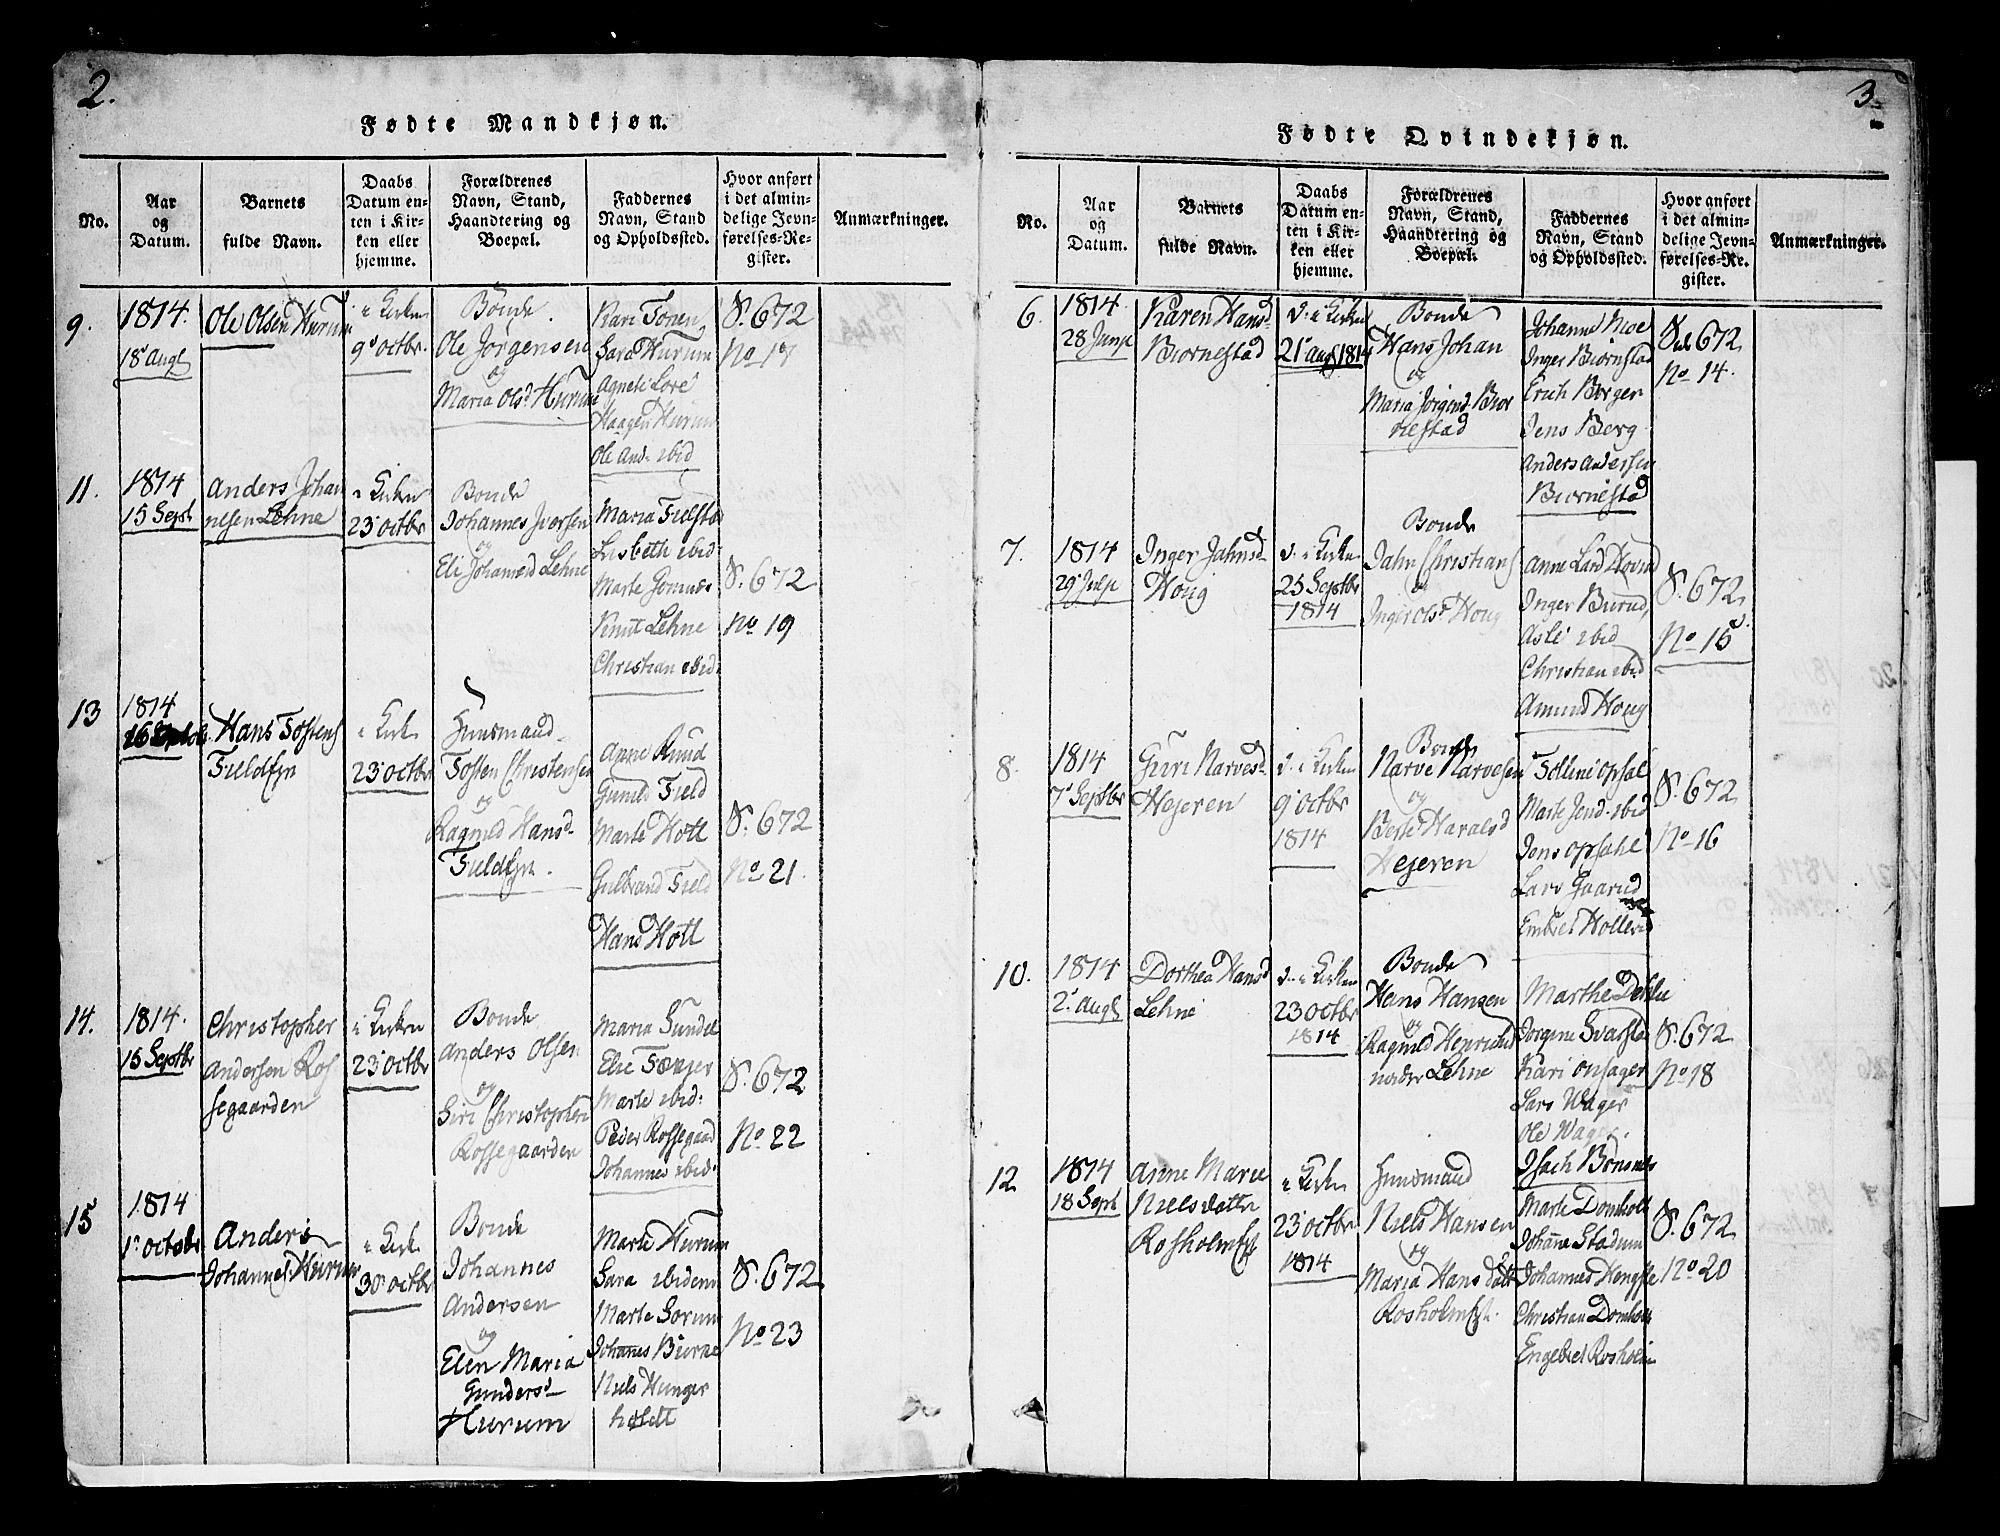 2.
Fødte Mandkjøn.
No.
Aar
og
Datum.
Barnets
fulde Navn.
Daabs
Datum en-
ten i Kir-
ken eller
hjemme.
Forældrenes
Navn, Stand,
Haandtering og
Boepæl.
Faddernes
Navn, Stand
og Opholdssted.
Hvor anført
i det almin-
delige Jevn-
førelses-Re-
gister.
Anmærkninger.
9.
1814.
18 Augt
Ole Olsen Hurum
i Kirken
9 Octbr.
Bonde
Ole Jørgensen
og
Maria Olsd Hurum
Kari Tonen
Sara Hurum
Agnete Lore
Haagen Hurum
Ole And. ibid
S. 672
No 17
11.
1814
15 Sept
Anders Johan
nesen Lehne
i Kirken
23 Octbr
Bonde
Johannes Iversen
og
Eli Johannesd Lehne
Maria Fielstad
Lisbeth ibid:
Marte
Knut Lehne
Christian ibid:
S. 672
No 19
13
1814
Hans Tostens
Fieldfyn
i Kirk
23 Octbr
Huusmand
Tosten Christensen
og
Ragnild Hansd
Fieldfyn.
Anne Ruud
Gunild Field
Marte Hott
Gulbrand Field
Hans Hott
S. 672
No 21.
14.
1814.
15 Septbr
Christopher
Andersen Ros
segaarden
i Kirken
23 Octbr
Bonde
Anders Olsen
og
Siri Christophers
Rossegaarden
Maria
Elie
Marte ibid:
Peder Rossegaad
Johannes ibid:
S. 672
No. 22
15
1814
1 Octobr
Anders
Johannes. Hurum
i Kirk
30 Octbr
Bonde
Johannes
Andersen
og
Elen Maria
Gundersd
Hurum
Marte Hurum
Sara ibidem
Marte Sorum
Johannes Biørne
Niels Hunger
holdt
S. 672
No 23
3
Fødte Qvindekjøn.
No.
Aar
og
Datum.
Barnets
fulde Navn.
Daabs
Datum en-
ten i Kir-
ken eller
hjemme.
Forældrenes
Navn, Stand,
Haandtering og
Boepæl.
Faddernes
Navn, Stand
og Opholdssted.
Hvor anført
i det almin-
delige Jevn-
førelses-Re-
gister.
Anmærkninger.
6.
1814.
28
Karen Hansd
Biørnestad
D. i Kirken
21 Aug 1814
Bonde
Hans Johan
og
Maria Jørgensd Biør
nestad
Johanne Moe
Inger Biørnstad
Erich Berger
Jens Berg
Anders Andersen
Biørnestad
672
No 14.
7.
1814
29
Inger Jahnsd
Houg
D. i Kirken
25 Septbr
1814
Bonde
Jahn Christians
og
Inger Olsd Houg
Anne
Inger Burud
Asle ibid
Christian ibid
Amund Houg
S. 672
No 15
8.
1814
7 Septbr
Guri Narvesd
Hejeren
D. i Kirken
9 Octbr
1814
Bonde
Narve Narvesen
og
Berte Haralsd
Hejeren
Opsal
Marte Jensd. ibid
Jens Opsahl
Lars Gaarud
Embret
S. 672
No 16
10.
1814
2 Augt
Dorthea Hansd
Lehne
D. i Kirken
23 Octbr
1814
Bonde
Hans Hansen
og
Ragnild Henriksd
nordre Lehne
Marthe
Jørgine Svarstad
Kari Onsager
Lars Wager
Ole Wager.
Isach Bønsnes
S. 672
No 18
12
1814
18 Sept
Anne Marie
Niels datter
Rosholmst
i Kirken
23 Octbr
1814
Huusmand
Niels Hansen
og
Maria Hans datt
Rosholmst.
Marte Domholt
Johanne Stadum
Johannes Hengsle
Christian Domholt
Engebret Rosholm
S. 672
No 20